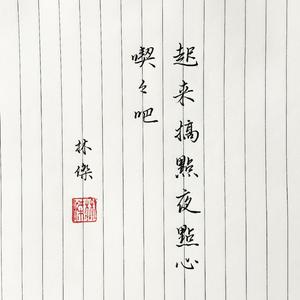 起来搞點夜點心
喫々吧
林傑